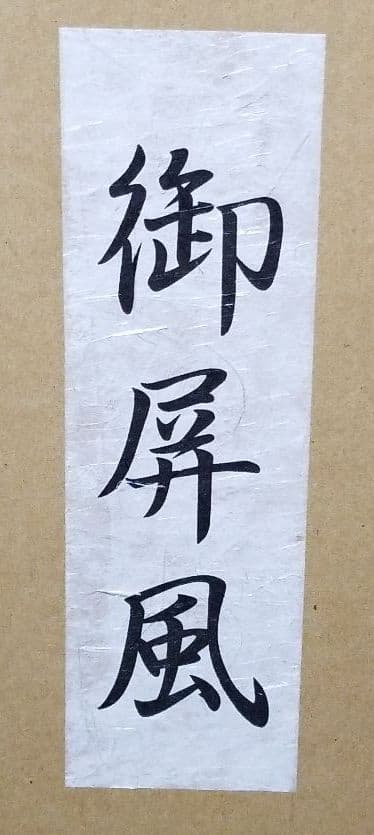 御屏風